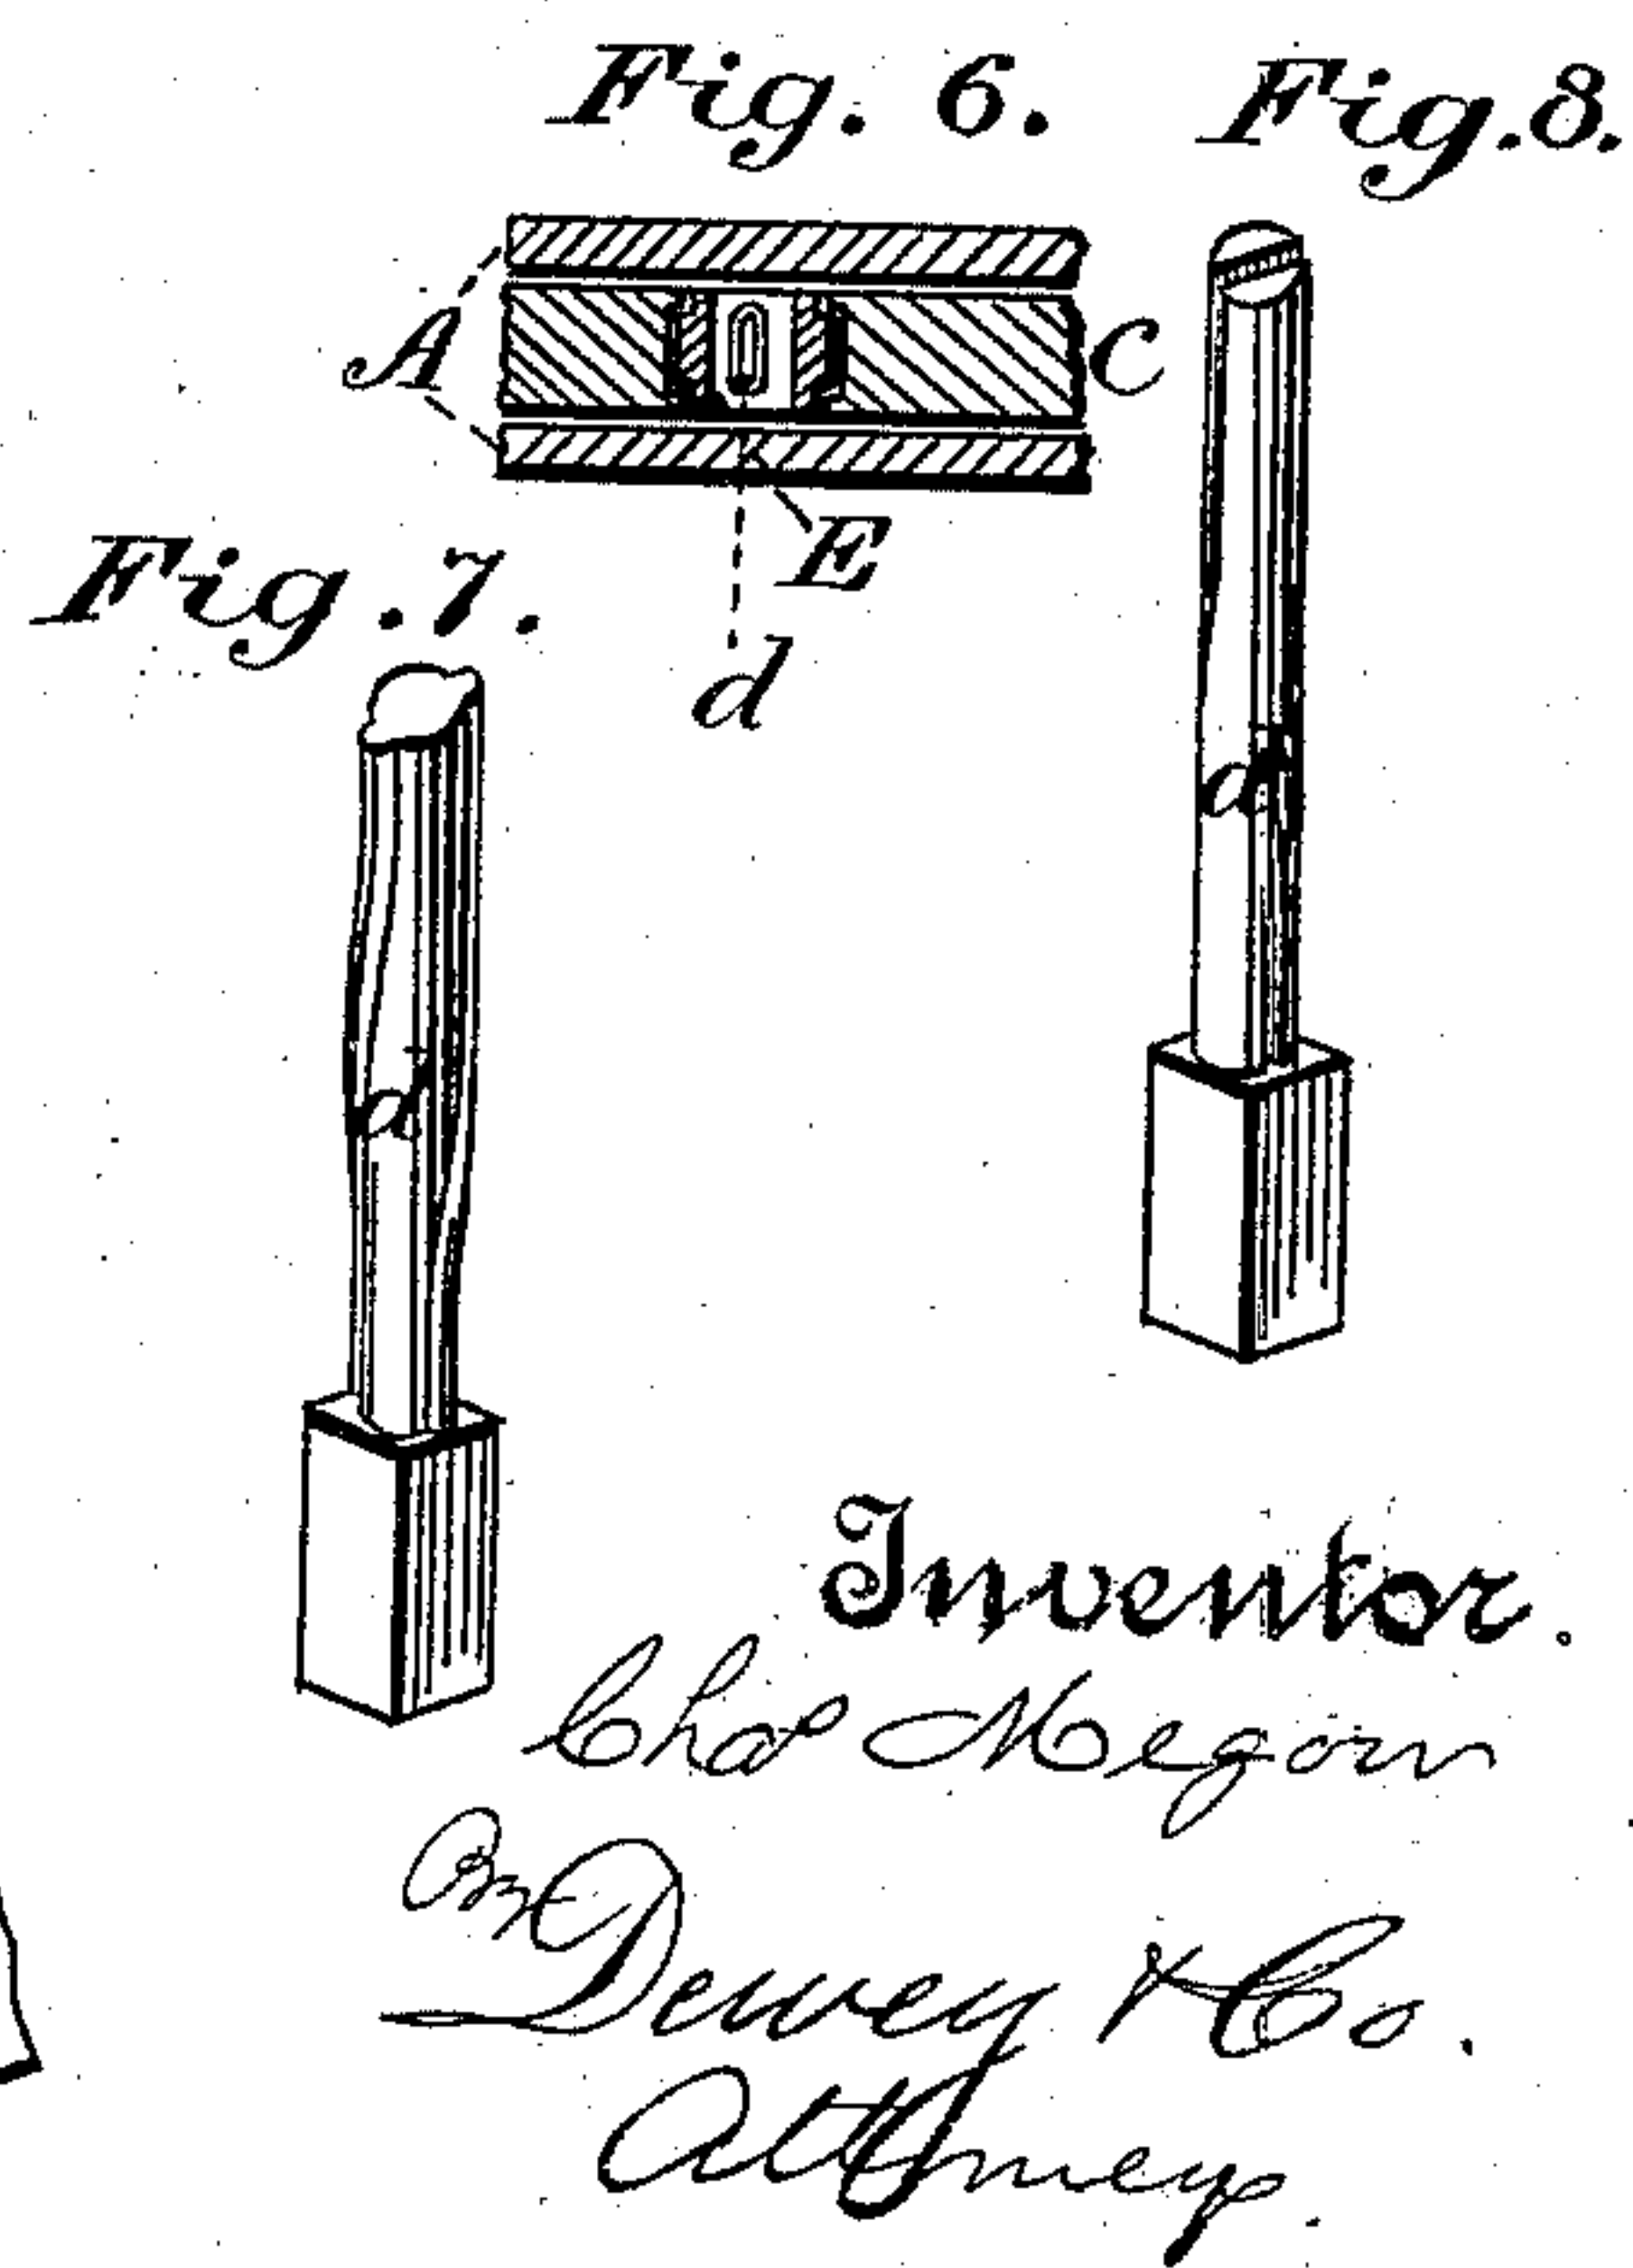 Fig. 6. Fig. 8.
A C
E
Fig. 7.
d
d
d
Inventor.
Chas Megow
By Dewey & Co.
Attorneys.